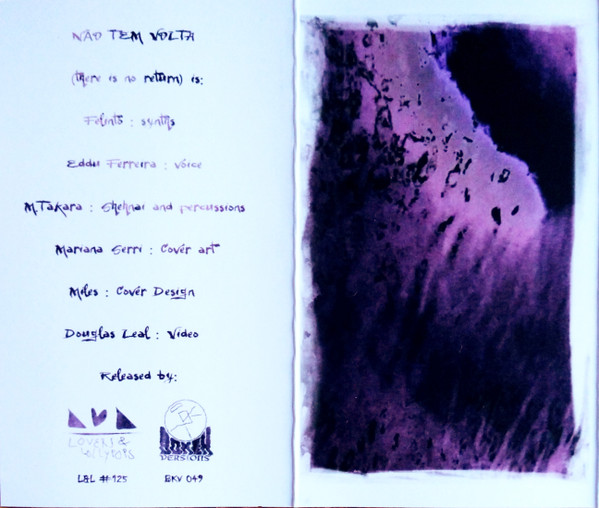 NÃO TEM VOLTA
(there is no return) is:
Felinto : synths
Eddu Ferreira : voice
M.Takara : Shehnai and percussions
Mariana Serri : Cover art
Miles : Cover Design
Douglas Leal : Video
Released by:
LOVERS &
LOLLYPOPS
VERSIONS
L&L # 125
BKV 049